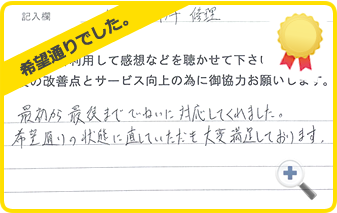 記入欄
修理
希望通りでした。
利用して感想などを聴かせて下さい
の改善点とサービス向上の為に御協力お願いします。
最初から最後までていねいに対応してくれました。
希望通りの状態に直していただき大変満足しております。